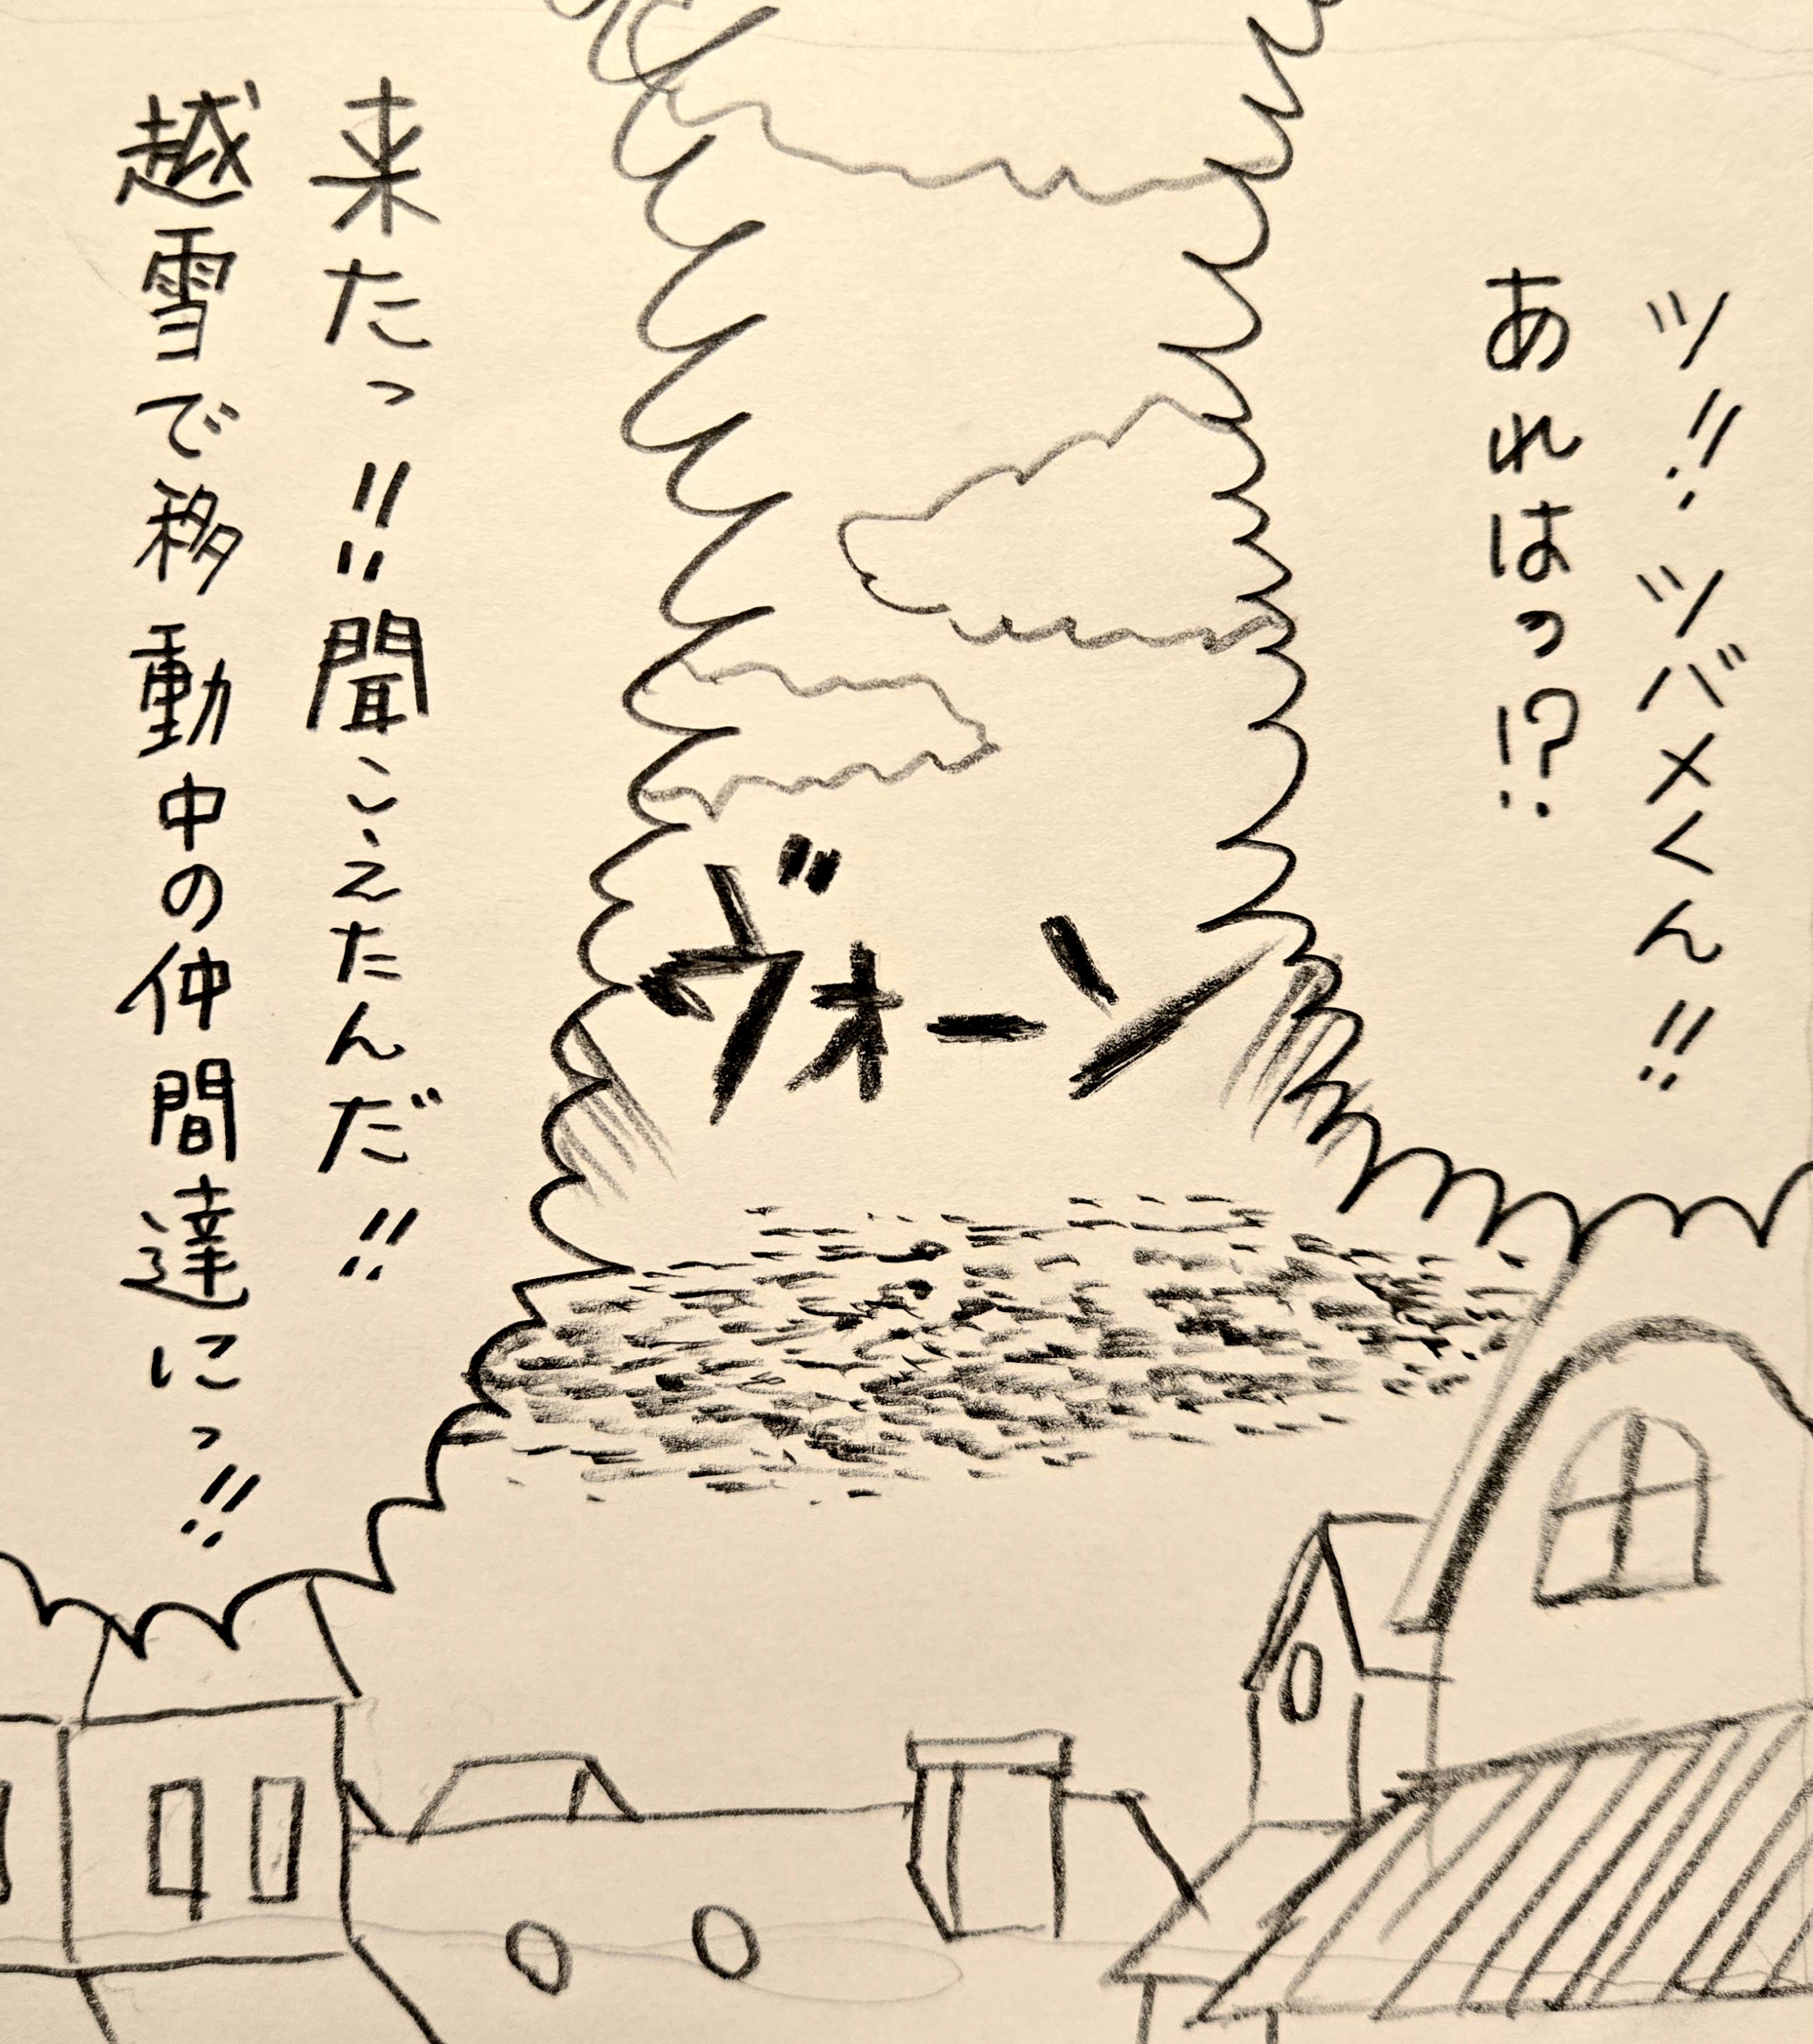 ツ!!ツバメくん!!
あれはっ!?
ヴォーン
来たっ!!聞こえたんだ!!
越雪で移動中の仲間達にっ!!